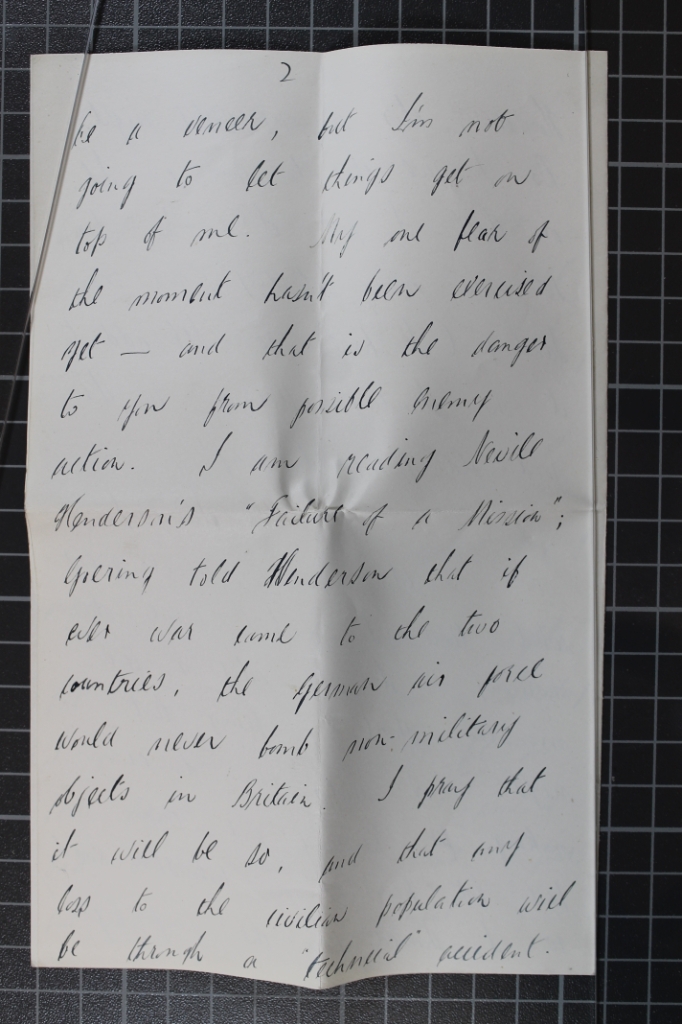 2
be a veneer, but I'm not
going to let things get on
top of me. My one fear of
the moment hasn't been exercised
yet — and that is the danger
to you from possible enemy
action. I am reading Nevile
Henderson's "Failure of a Mission";
Goering told Henderson that if
ever war came to the two
countries, the German air force
would never bomb non-military
objects in Britain. I pray that
it will be so, and that any
loss to the civilian population will
be through a "technical" accident.